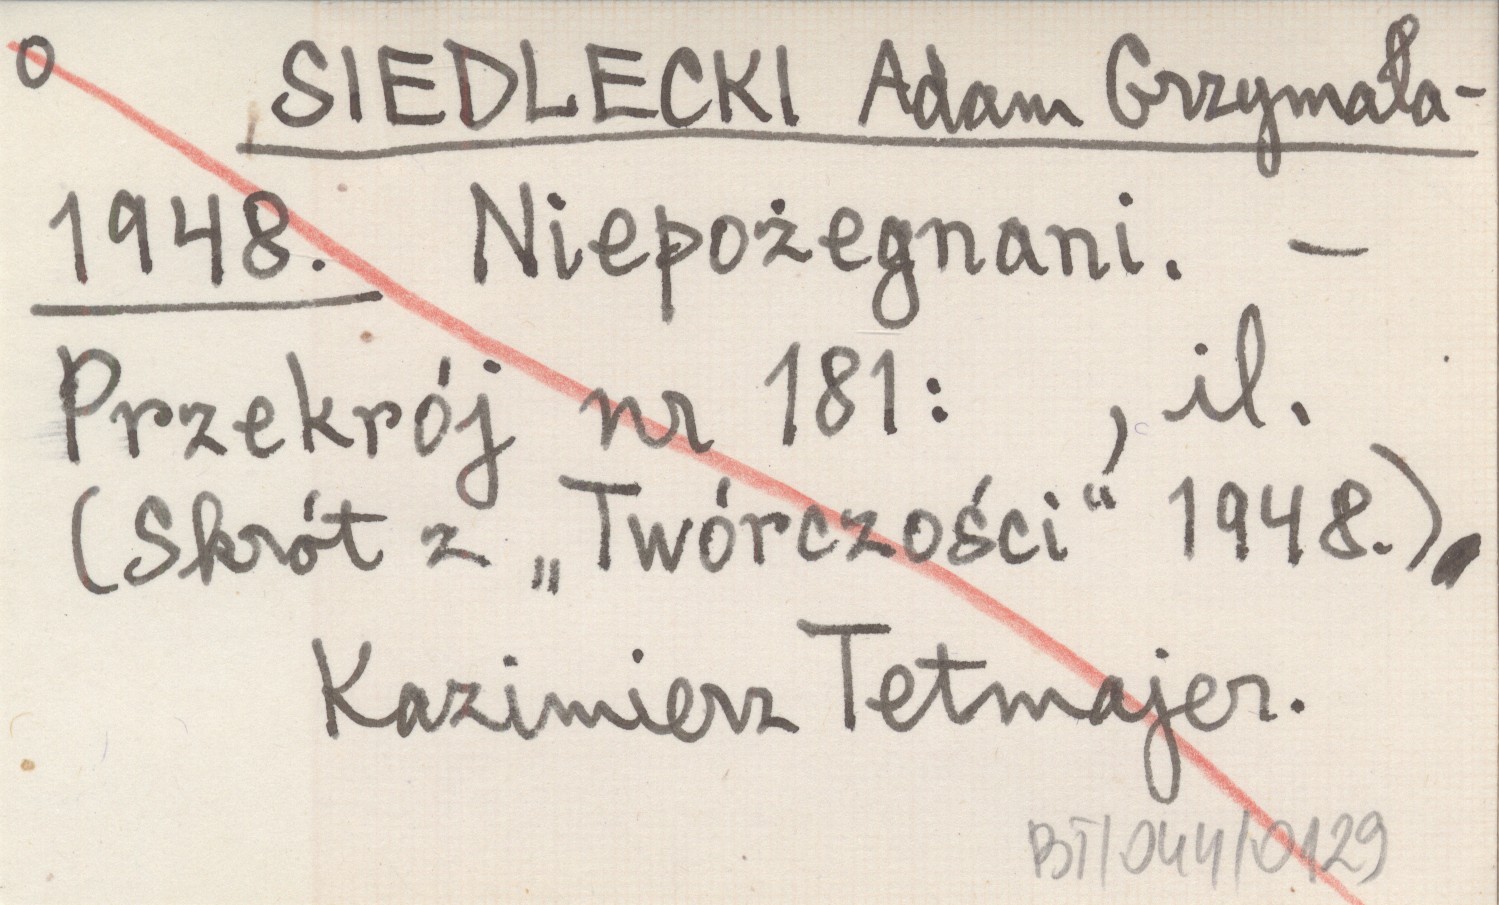 o SIEDLECKI Adam Grzymała-
1948. Niepożegnani. —
Przekrój nr 181: , il.
(Skrót z „Twórczości“ 1948.).
Kazimierz Tetmajer.
BT/044/0129